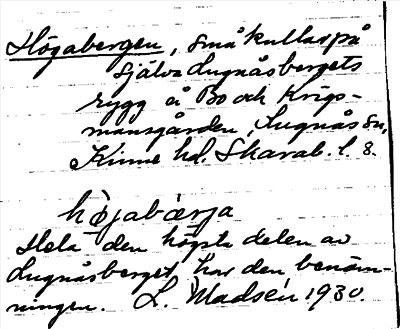 Högabergen, små kullar på
själva Lugnåsbergets
rygg å Bo och Krigs-
mansgården, Lugnås sn,
Kinne hd. Skarab. l. 8.
hø̀jabæ̀rja
Hela den högsta delen av
Lugnåsberget, har den benäm-
ningen. L. Madsén 1930